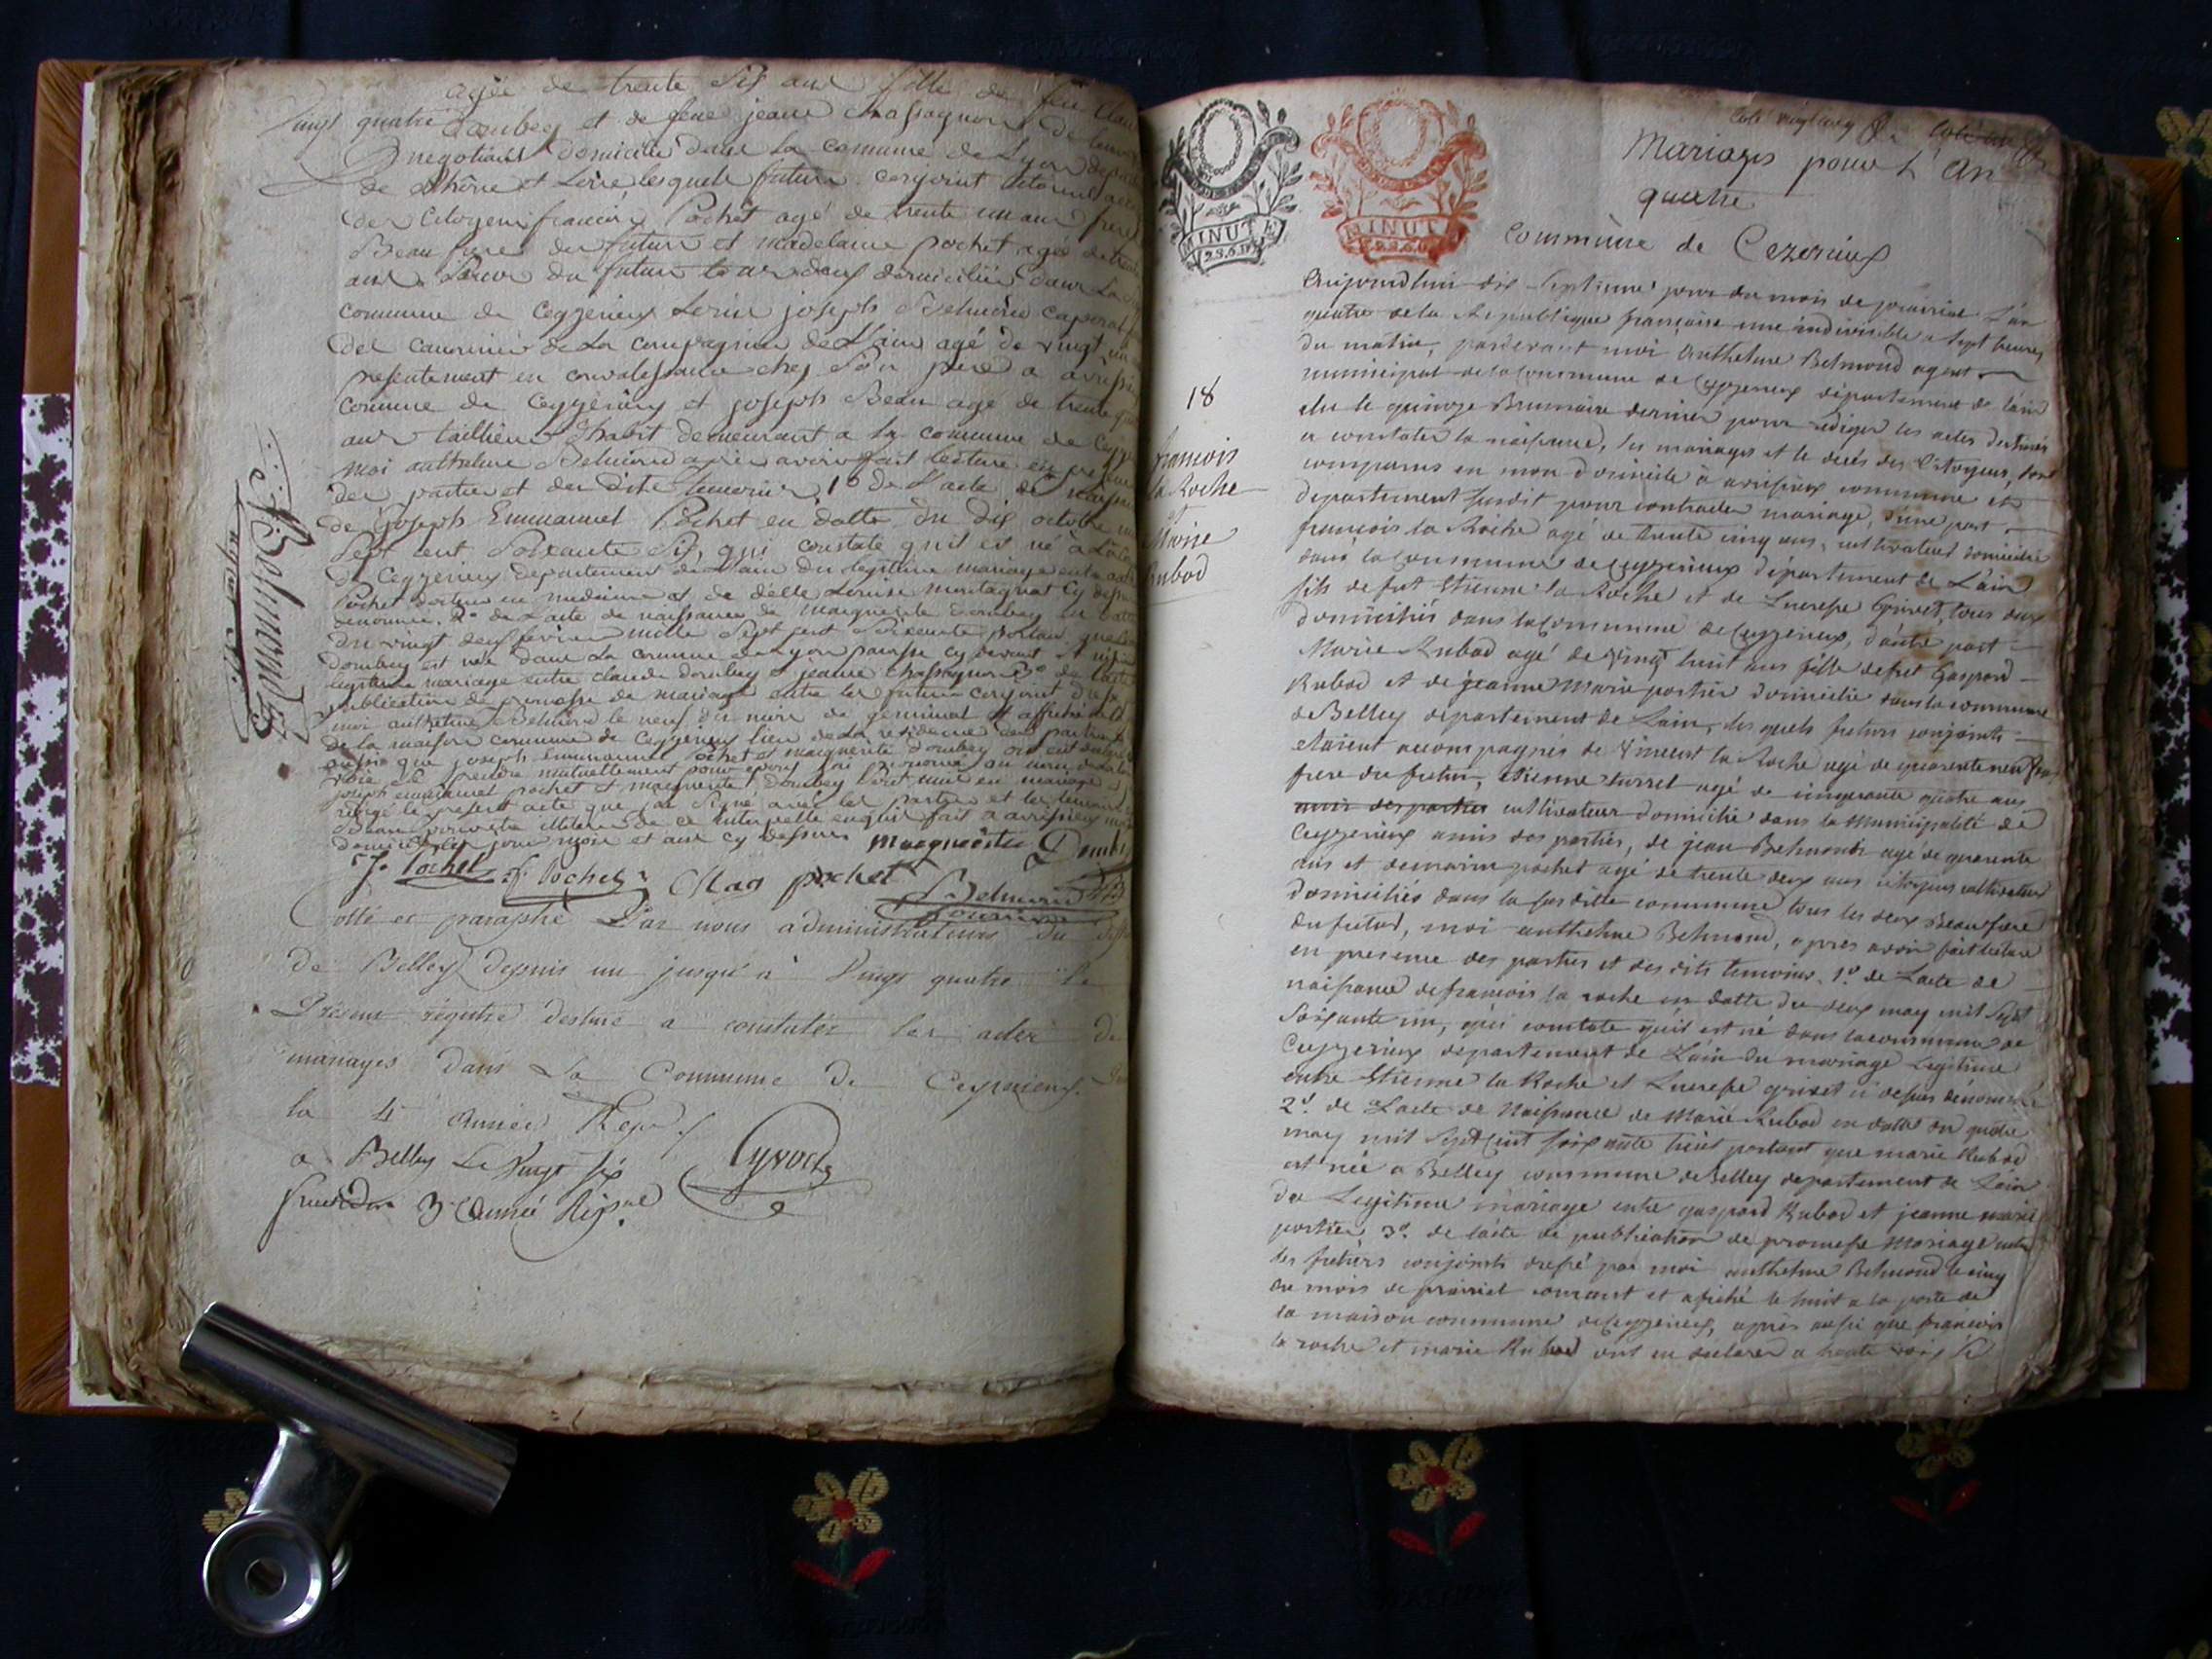 agée de trente six ans fille de feu Clau
Vingt quatre Dombey et de feue jeane Chassagnon de leur
negotians domiciliés dans la comune de Lyon depart
de Rhône et Loire, lesquels futurs conjoint
des Citoyens françois Pochet agé de trente un ans frere
Beau frere du futur et madelaine pochet agée de trente
ans Soeur du futur tous deux domiciliés dans la
comune de Ceyzerieux joseph Belmond caporal
des canoniers de La compagnie de L'ain agé de vingt un
presentement en convalessance chez Son pere a avrissieu
comune de Ceyzerieux et joseph Beau agé de trente
ans tailleur d'habit demeurant a la comune de Ceyze
moi anthelme Belmond après avoir fait lecture en presence
des parties et des dits temoins 1º de L'acte de naissance
de joseph Emmanuel Pochet en datte du dix octobre mil
Sept cent Soixante Six, qui constate qu'il est né à
de Ceyzerieux departement de L'ain du legitime mariage entre
Pochet docteur en medecine et de delle Louise montagnat cy dessus
denomée. 2º de L'acte de naissance de marguerite Dombey en datte
du vingt deux fevrier mille Sept cent Soixante portant que
Dombey est née dans La comune de Lyon paroisse cy devant St nizier
legitime mariage entre claude dombey et jeane chassagnon 3º de L'acte
publication de promesse de mariage entre les futurs conjoint dressé
moi anthelme Belmond le neuf du mois de germinal et affiché
de la maison comune de Ceyzerieux lieu de la residence des parties
aussi que joseph emmanuel Pochet et marguerite dombey ont eut declaré
voix se prendre mutuellement pour epoux j'ai prononcé au nom de la loi
joseph emmanuel pochet et marguerite Dombey Sont unis en mariage
redigé le present acte que j'ai Signé avec les parties et les temoins
Beau pour être illitere de ce interpellé enquis fait a avrissieu
domicile les jour mois et ans cy dessus marguerite Dombey
J. Pochet f. Pochet Mag pochet Belmond
Cotté et paraphé Par nous administrateurs du
de Belley depuis un jusqu'à Vingt quatre le
Présent régistre destiné a constater les actes de
mariages dans La Commune de Ceyzerieux
la 4 année Rep.
a Belley Le Vingt six
fructidor 3 année Rép.
Mariages pour L'An
quatre
Commune de Cezerieux
18
françois
la Roche
et
Marie
Rubod
MINUTE
MINUTE
Aujourdhui dix Septieme jour du mois de prairial L'an
quatre de la Republique française une indivisible a sept heures
du matin, pardevant moi Anthelme Belmond agent
municipal de la Commune de Ceyzerieux département de l'ain
élu le quinze Brumaire dernier pour rediger les actes destinés
a constater la naissance, les mariages et le decés des Citoyens, sont
comparus en mon domicile à avrissieu commune et
departement susdit pour contracter mariage, d'une part
françois la Roche agé de trente cinq ans, cultivateur domicilié
dans la Commune de Ceyzerieux département de L'ain
fils de fut Etienne la Roche et de Lucresse Grivet, tous deux
domiciliés dans la Commune de Ceyzerieux, d'autre part
Marie Rubod agé de vingt huit ans fille de fut Gaspard
Rubod et de jeanne Marie portier domicilié dans la commune
de Belley département de L'ain, les quels futurs conjoints
etoient accompagnés de Vincent la Roche agé de quarente neuf ans
frere du futur, etienne turret agé de cinquante quatre ans
amis des parties cultivateur domicilié dans la Municipalité de
Ceyzerieux amis des parties, de jean Belmond agé de quarente
ans et de marin pochet agé de trente deux ans citoyens cultivateurs
domiciliés dans la susditte commune tous les deux Beaufrere
du futur, moi anthelme Belmond, après avoir fait lecture
en presence des parties et des dits temoins, 1º de L'acte de
naissance de francois la roche en datte du deux may mil sept
soixante un, qui constate qu'il est né dans la commune de
Ceyzerieux departement de L'ain du mariage Legitime
entre Etienne la Roche et Lucresse grivet ci dessus dénommé
2º de L'acte de Naissance de Marie Rubod en datte du quatre
may mil Sept Cent soixante huit portant que marie Rubod
est née a Belley commune de Belley departement de L'ain
du Legitime mariage entre gaspard Rubod et jeanne marie
portier 3º de l'acte de publication de promesse Mariage entre
les futurs conjoints dressé par moi anthelme Belmond le cinq
du mois de prairial courant et afiché le huit a la porte de
la maison commune de Ceyzerieux, après aussi que francois
la roche et marie Rubod ont eu declarer a haute voix se